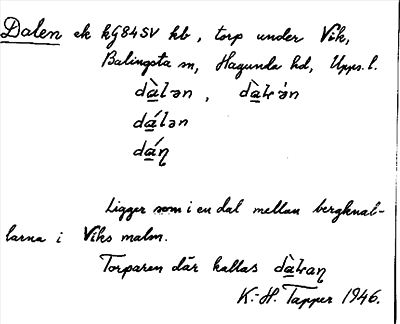 Dalen ek kG84SV kb, torp under Vik,
Balingsta sn, Hagunda hd, Upps. l.
dà̲lən, dà̲ɫən
dá̲lən
dá̲ɳ
Ligger som i en dal mellan bergknal-
larna i Viks malm.
Torparen där kallas dà̲ɫaɳ
K.-H. Tapper 1946.